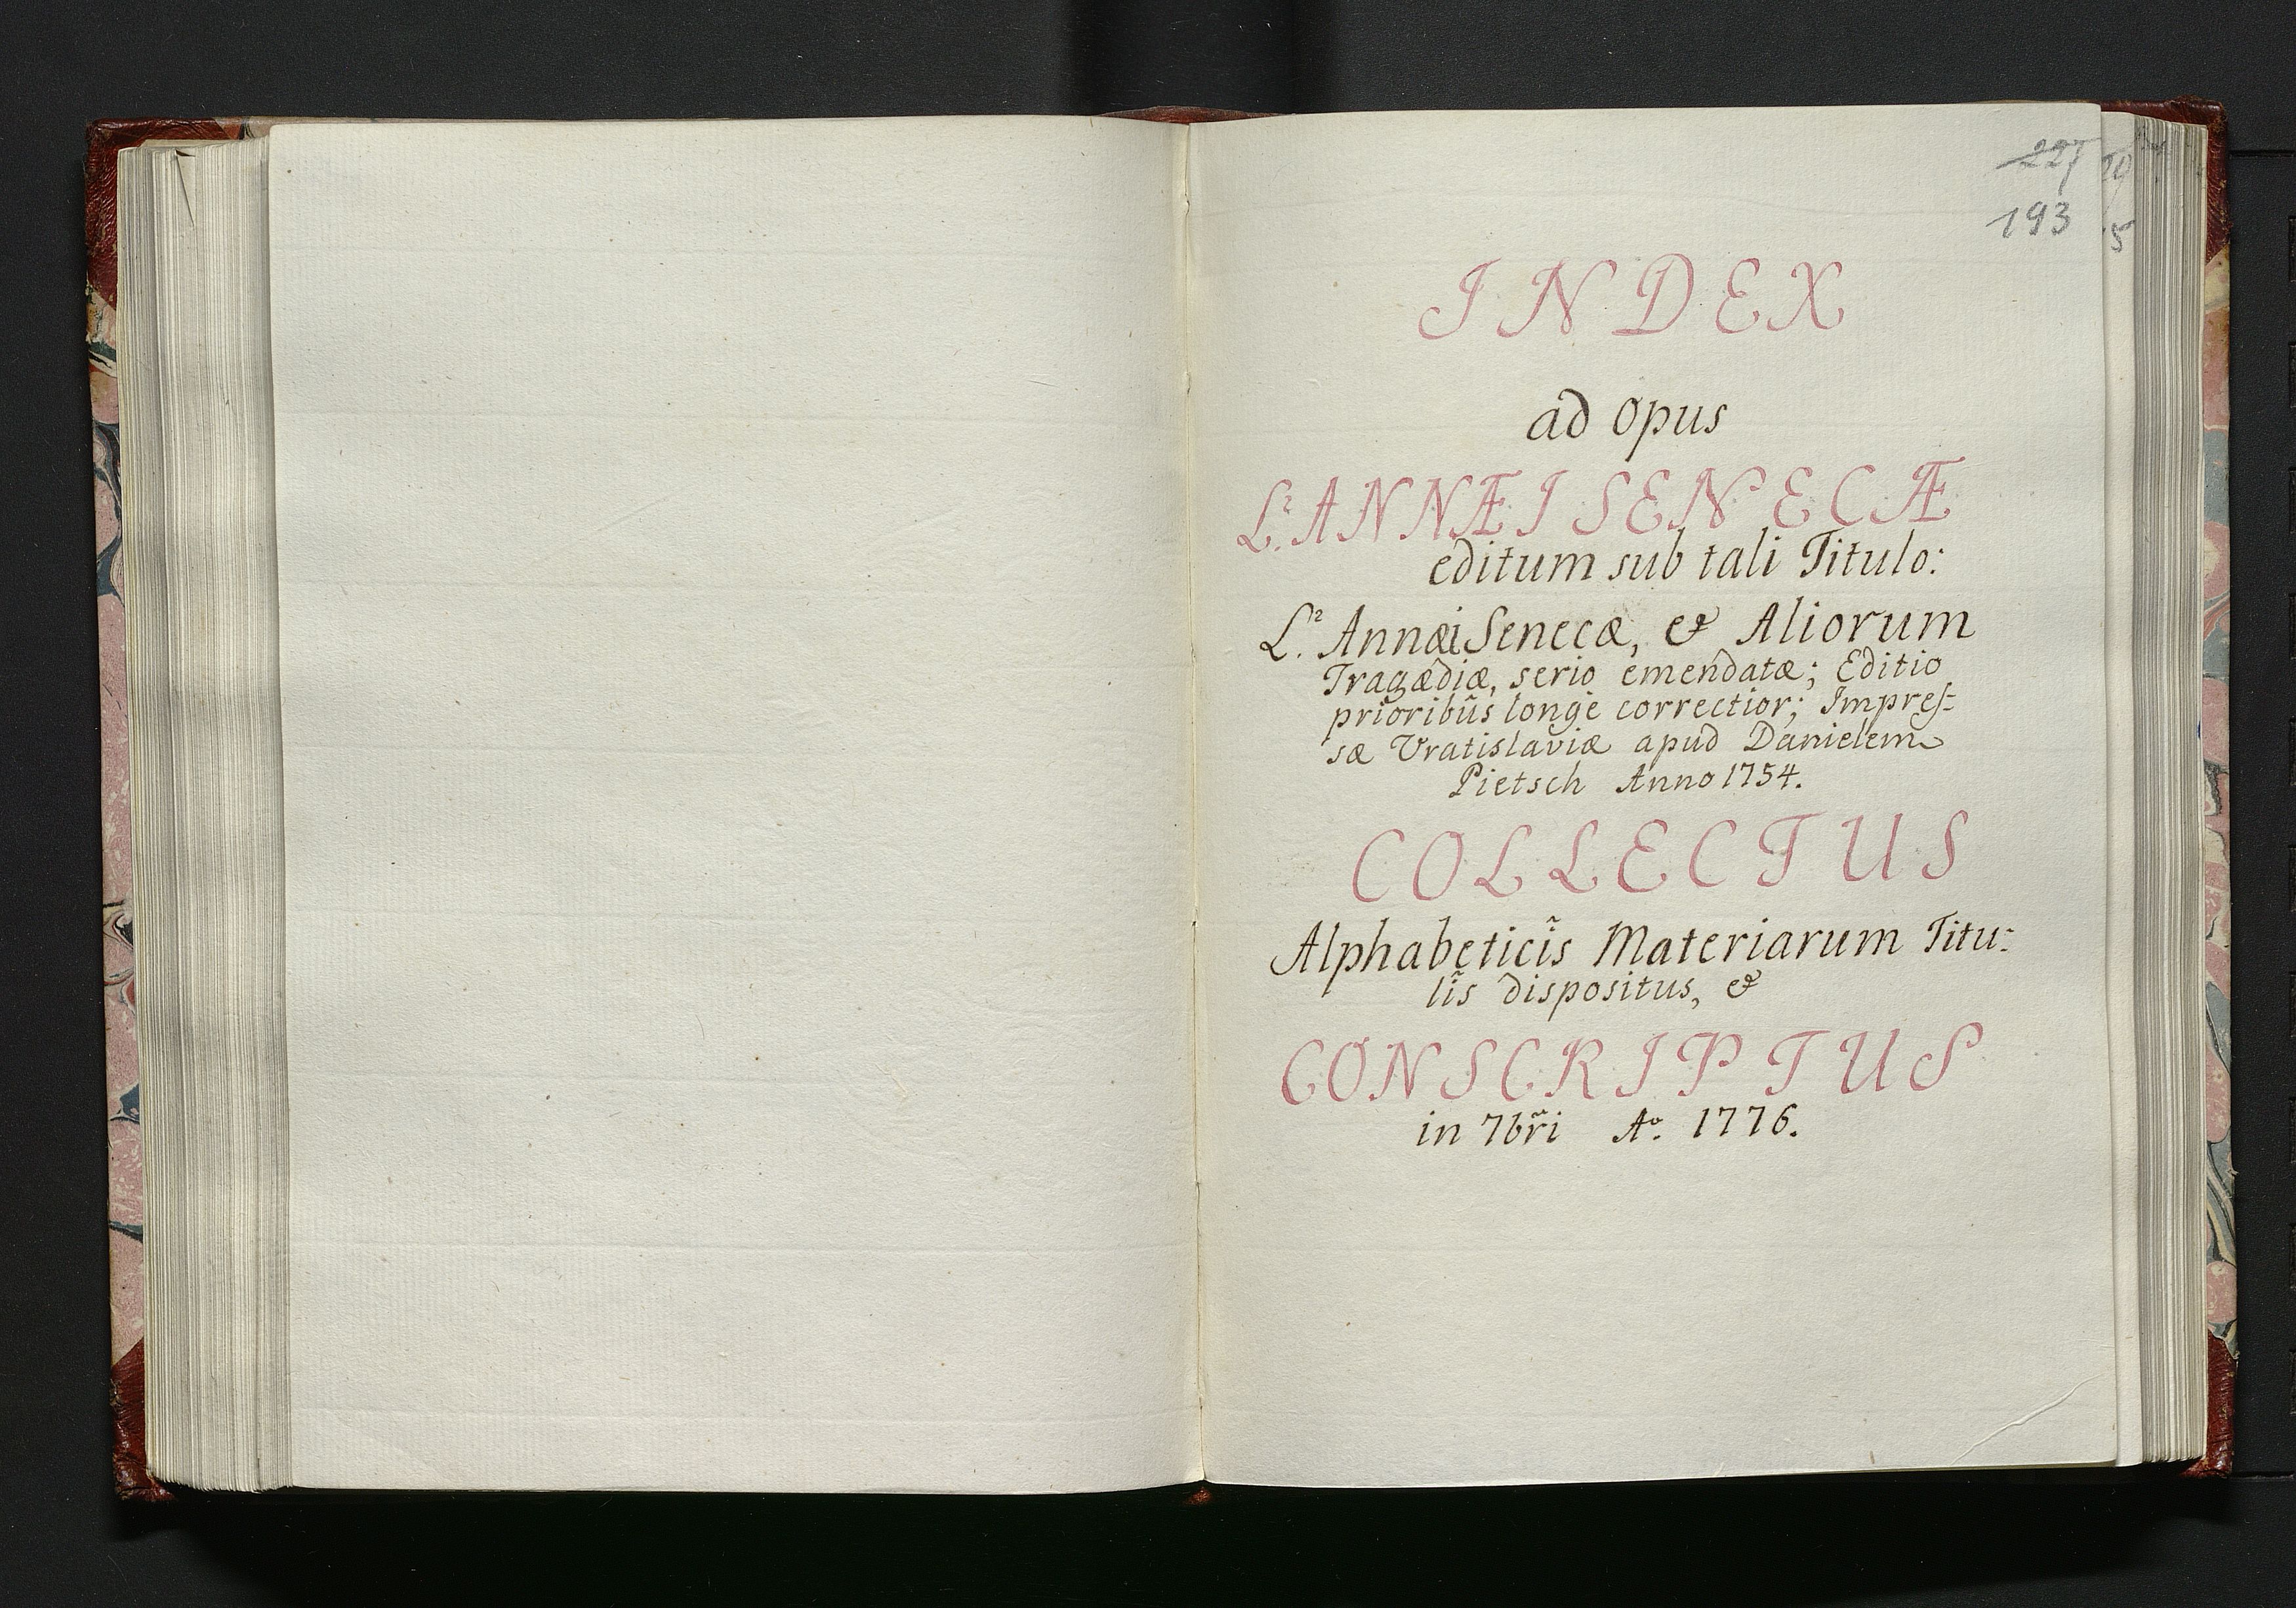 227
193
5
INDEX
ad opus
L.² ANNÆI SENECÆ
editum sub tali Titulo:
L.² Annæi Senecæ, & Aliorum
Tragædiæ, serio emendatæ; Editio
prioribũs longè correctior; Impres-
sæ Vratislaviæ apud Danielem
Pietsch Anno 1754.
COLLECTUS
Alphabeticĩs Materiarum Titu:
lĩs dispositus, &
CONSCRIPTUS
in 7br̃i Aº. 1776.